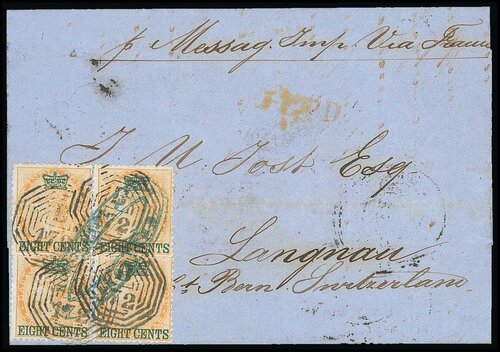 p. Messag. Imp. Via France
J. U. Jost Esq
Langnau
Ct Bern. Switzerland
EIGHT CENTS EIGHT CENTS
EIGHT CENTS EIGHT CENTS